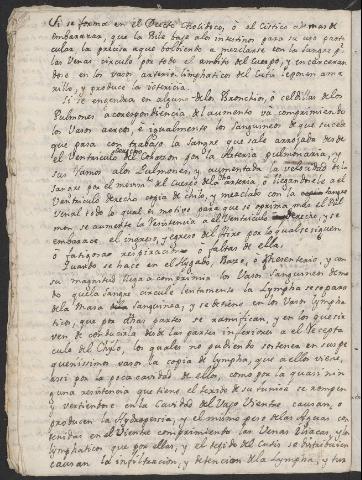 Si se forma en el Ducto Cholidoco, ó el Cistico ademas de
embarazar, que la Bile baje alos intestinos para su uso parti-
cular, la precisa aque bolviendo a mezclarse con la Sangre p.r
las Venas circule por todo el ambito del Cuerpo, y encarceran
dose en los vasos arterio-limphaticos del Cutis le ponga ama
rillo, y produce la Ictericia.
Si se engendra en alguno de los Bronchios, ó celdillas de los
Pulmones acorrespondencia del aumento va comprimiendo
los Vasos aereos, é igualmente los Sanguineos de que sucede
que pasa con trabajo la Sangre que sale arrojada desde
el Ventriculo del Corazon por la Arteria pulmonaria, y
sus Ramos alos Pulmones, y aumentada la velocidad de la
Sangre por el menor del Cuerpo de la arteria o llegandose a el
Ventriculo derecho copia de chilo, y mezclado con la Sangre
Venal todo lo qual es motivo para que se oprima mas el Pul
mon se aumente la Resistencia a el Ventriculo derecho, y se
embarace el ingreso, y egreso del Aire por lo qual se siguen
ó fatigosas respiraciones ó faltas de ellas.
Quando se hace en el Higado, Bazo, ó Mesenterio, y con
su magnitud llega a comprimir los Vasos Sanguineos demo
do que la Sangre circule lentamente la Lympha se separa
de la Masa Sanguinea, y se detiene en los Vasos lympha
ticos, que por otras partes se ramifican, y en los que sir
ven de conducirla desde las partes inferiores a el Recepta
culo del Chylo, los quales no pudiendo sostener en sus pe
queñisimos vasos la copia de lympha, que a ellos viene,
asi por la poca cavidad de ellos, como por la quasi nin
guna resistencia que tiene el texido de su tunica se rompen
y vertiendose en la Cavidad del Vajo Vientre causan, ó
producen la Hydropesia; y el mismo peso de las Aguas con
tenidas en el Vientre comprimiendo las Venas Iliacas, y los
lymphaticos que por ellas, y el texido del Cutis se distribuyen
causan la infiltracion, y detencion de la Lympha, y tum